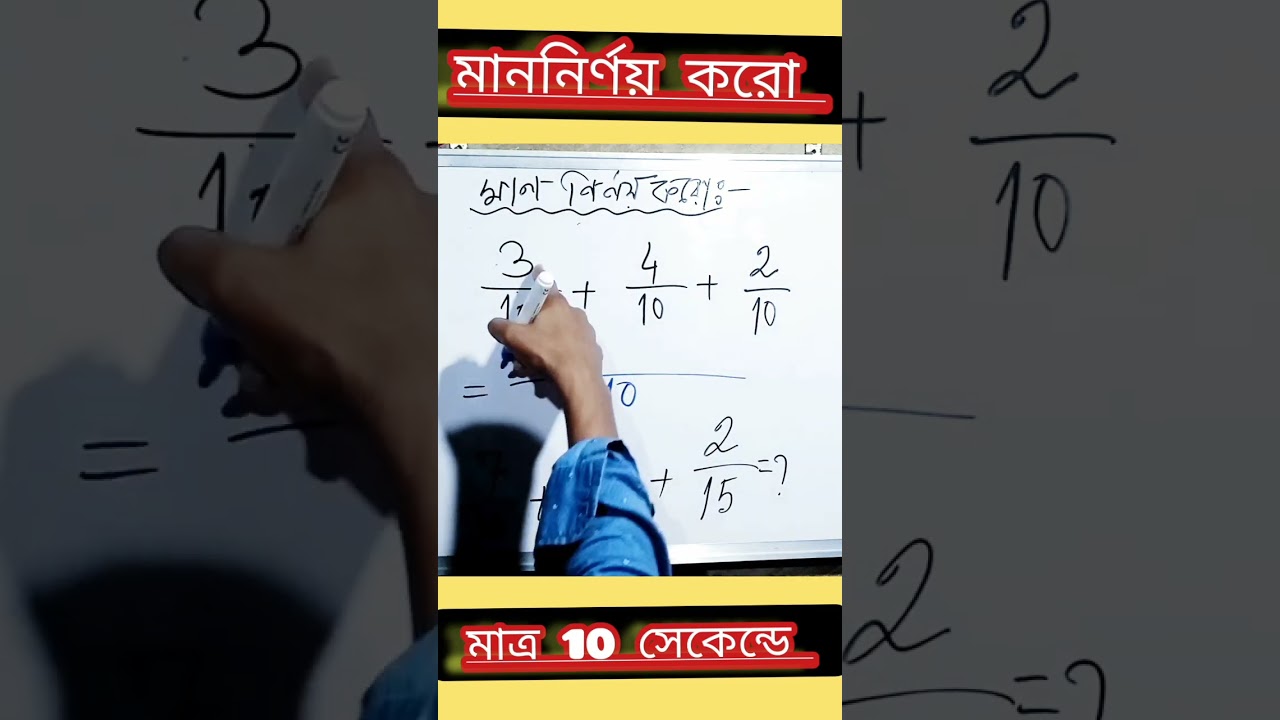 মাননির্ণয় করো
মান নির্ণয় করো:-
3/1 + 4/10 + 2/10
= 10
7 + + 2/15 = ?
মাত্র 10 সেকেন্ডে